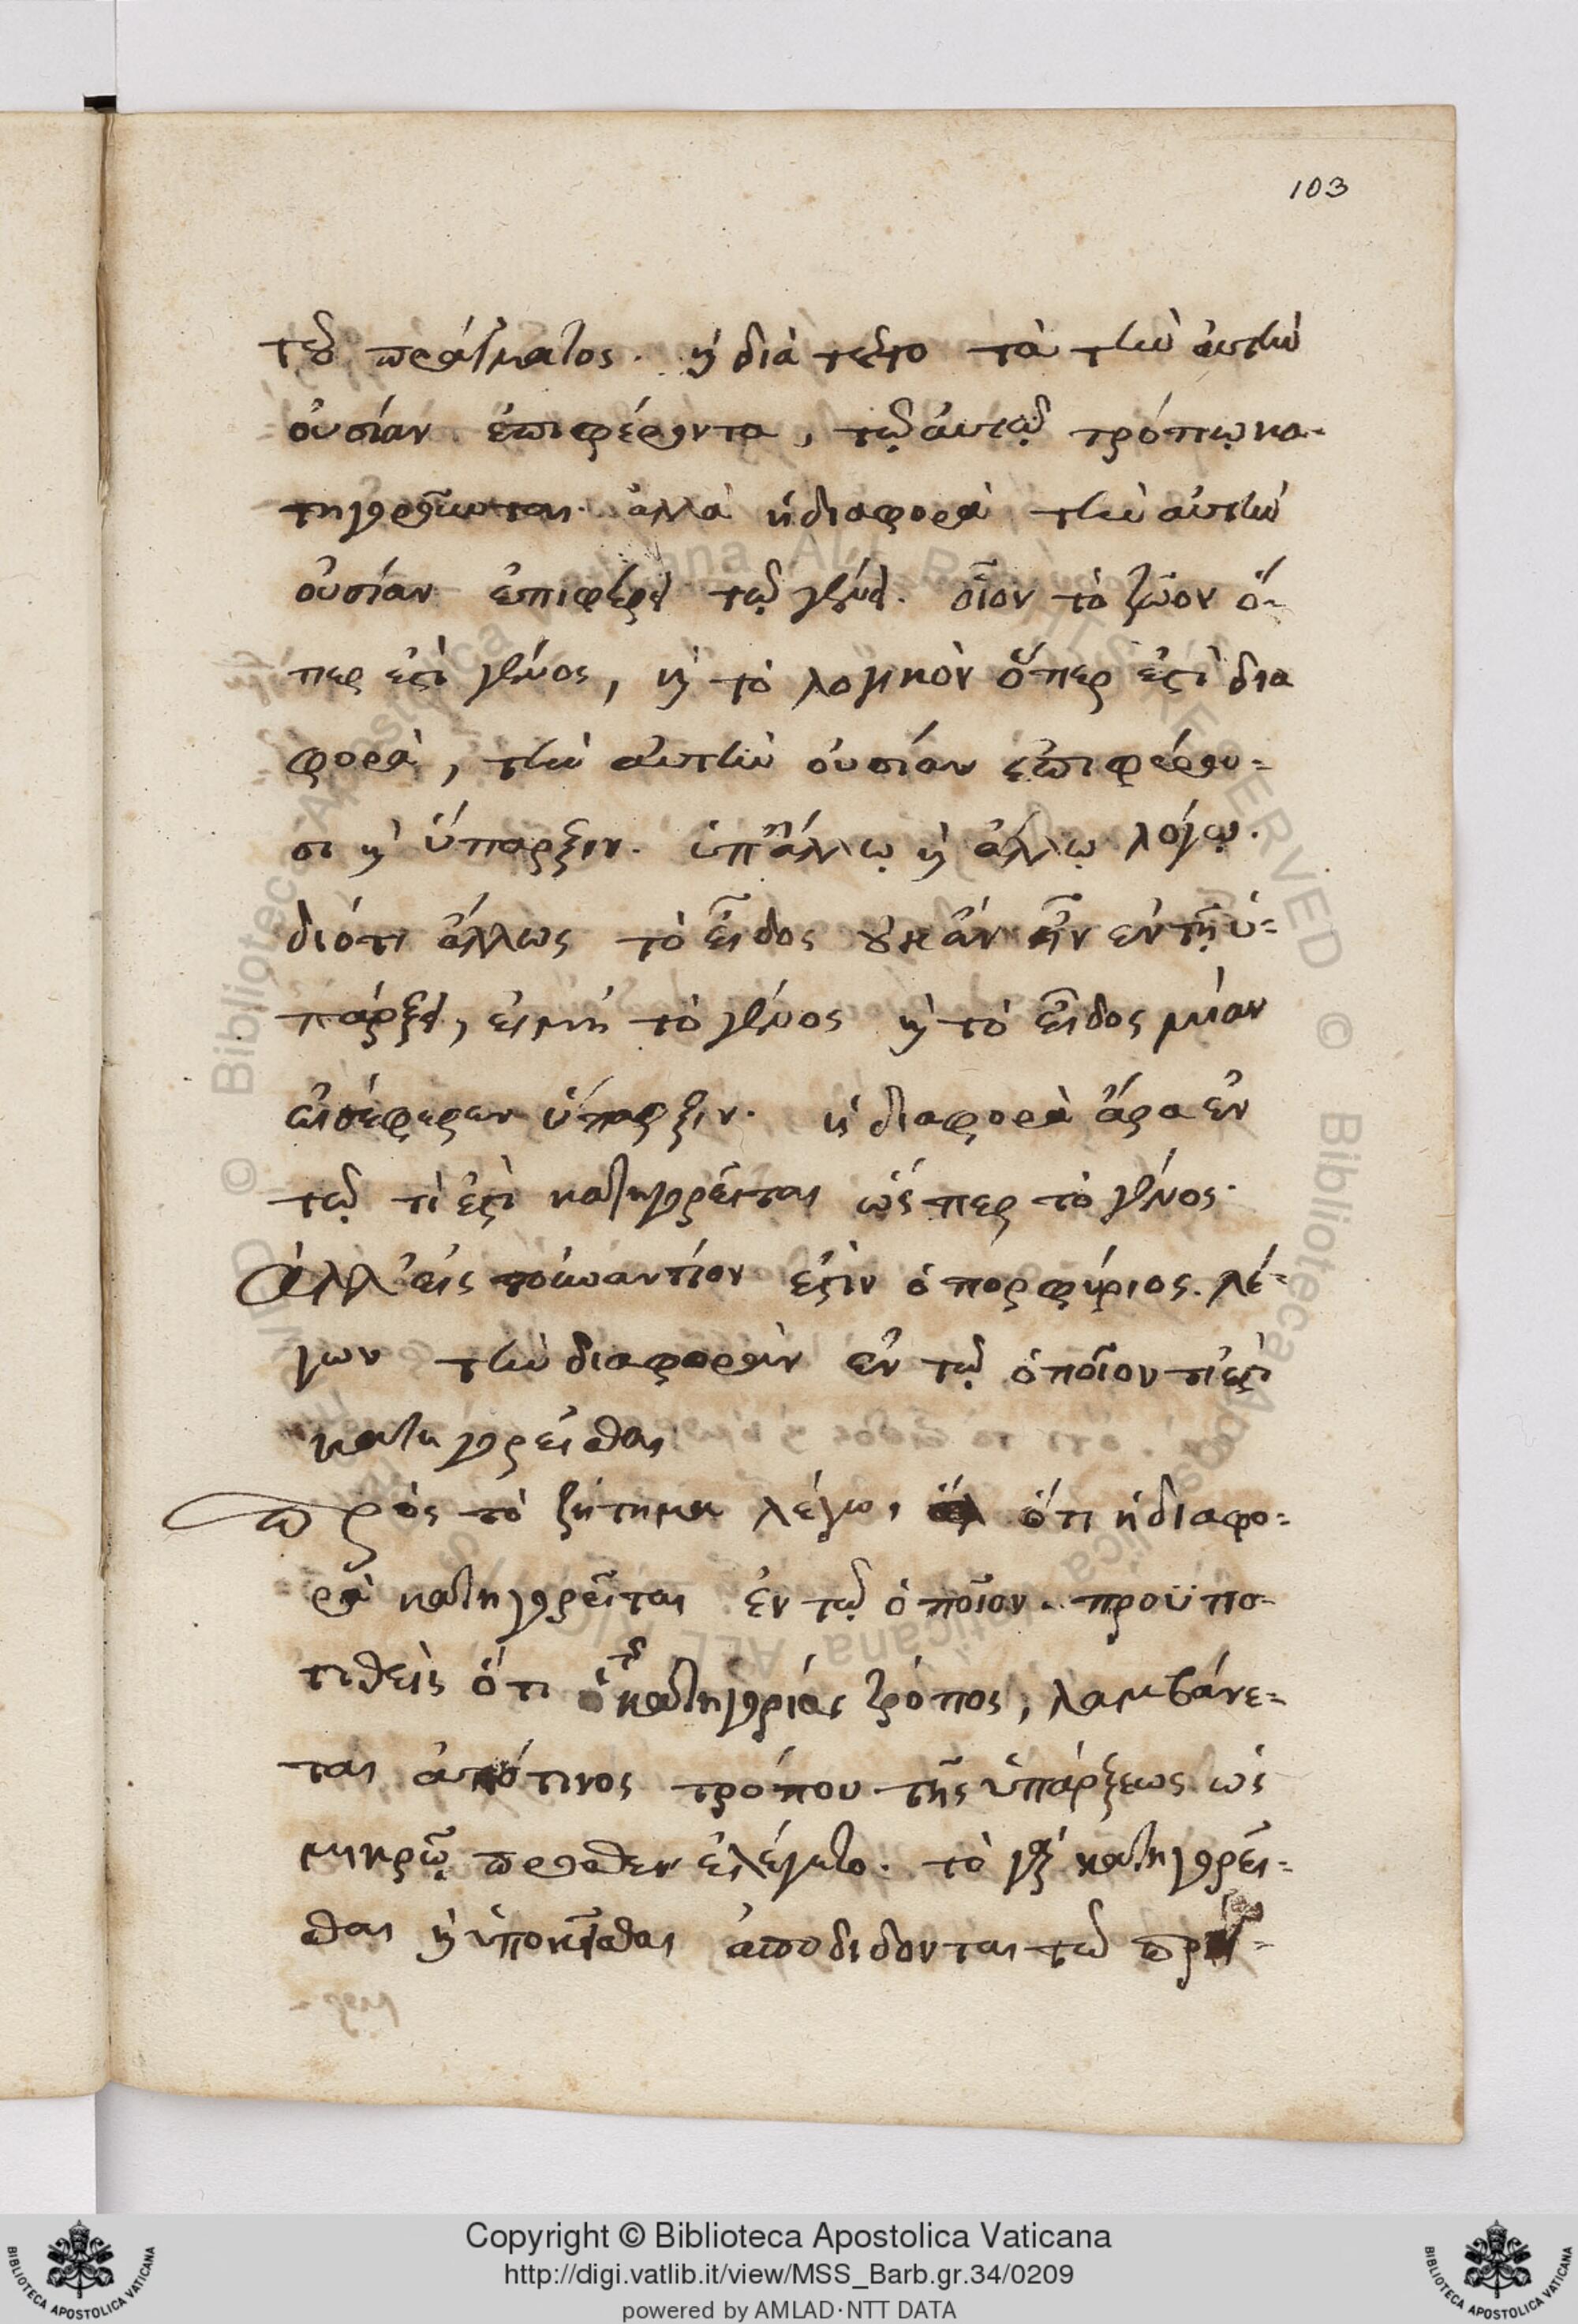 103
τοῦ πράγματος. καὶ διὰ τοῦτο τὰ τὴν αὐτὴν
οὐσίαν ἐπιφέροντα, τῷ αὐτῷ τρόπῳ κα-
τηγοροῦνται. ἀλλὰ ἡ διαφορὰ τὴν αὐτὴν
οὐσίαν ἐπιφέρει τῷ γένει. οἷον τὸ ζῶον ὅ-
περ ἐστὶ γένος, καὶ τὸ λογικὸν ὅπερ ἐστὶ δια
φορὰ, τὴν αὐτὴν οὐσίαν ἐπιφέρου-
σι καὶ ὕπαρξιν. ὑπ' ἄλλῳ καὶ ἄλλῳ λόγῳ.
διότι ἄλλως τὸ εἶδος οὐκ ἂν ἦν ἐν τῇ ὑ-
πάρξει, εἰ μὴ τὸ γένος καὶ τὸ εἶδος μίαν
εἰσέφερων ὕπαρξιν. ἡ διαφορὰ ἄρα ἐν
τῷ τί ἐστὶ κατηγορεῖται ὥσπερ τὸ γένος.
Ἀλλ' εἰς τοὐναντίον ἐστὶν ὁ πορφύριος. λέ-
γων τὴν διαφορὰν ἐν τῷ ὁποῖον τί ἐστι
κατηγορεῖσθαι
Πρὸς τὸ ζήτημα λέγω, ὅτι ἡ διαφο-
ρὰ κατηγορεῖται ἐν τῷ ὁποῖον. προϋπο-
τιθεὶς ὅτι ὁ τῆς κατηγορίας τρόπος, λαμβάνε-
ται ἀπό τινος τρόπου τῆς ὑπάρξεως ὡς
μικρῷ πρόσθεν ἐλέγετο. τὸ γὰρ κατηγορεῖ-
σθαι καὶ ὑποκεῖσθαι ἀποδίδονται τῷ
Copyright © Biblioteca Apostolica Vaticana
http://digi.vatlib.it/view/MSS_Barb.gr.34/0209
powered by AMLAD·NTT DATA